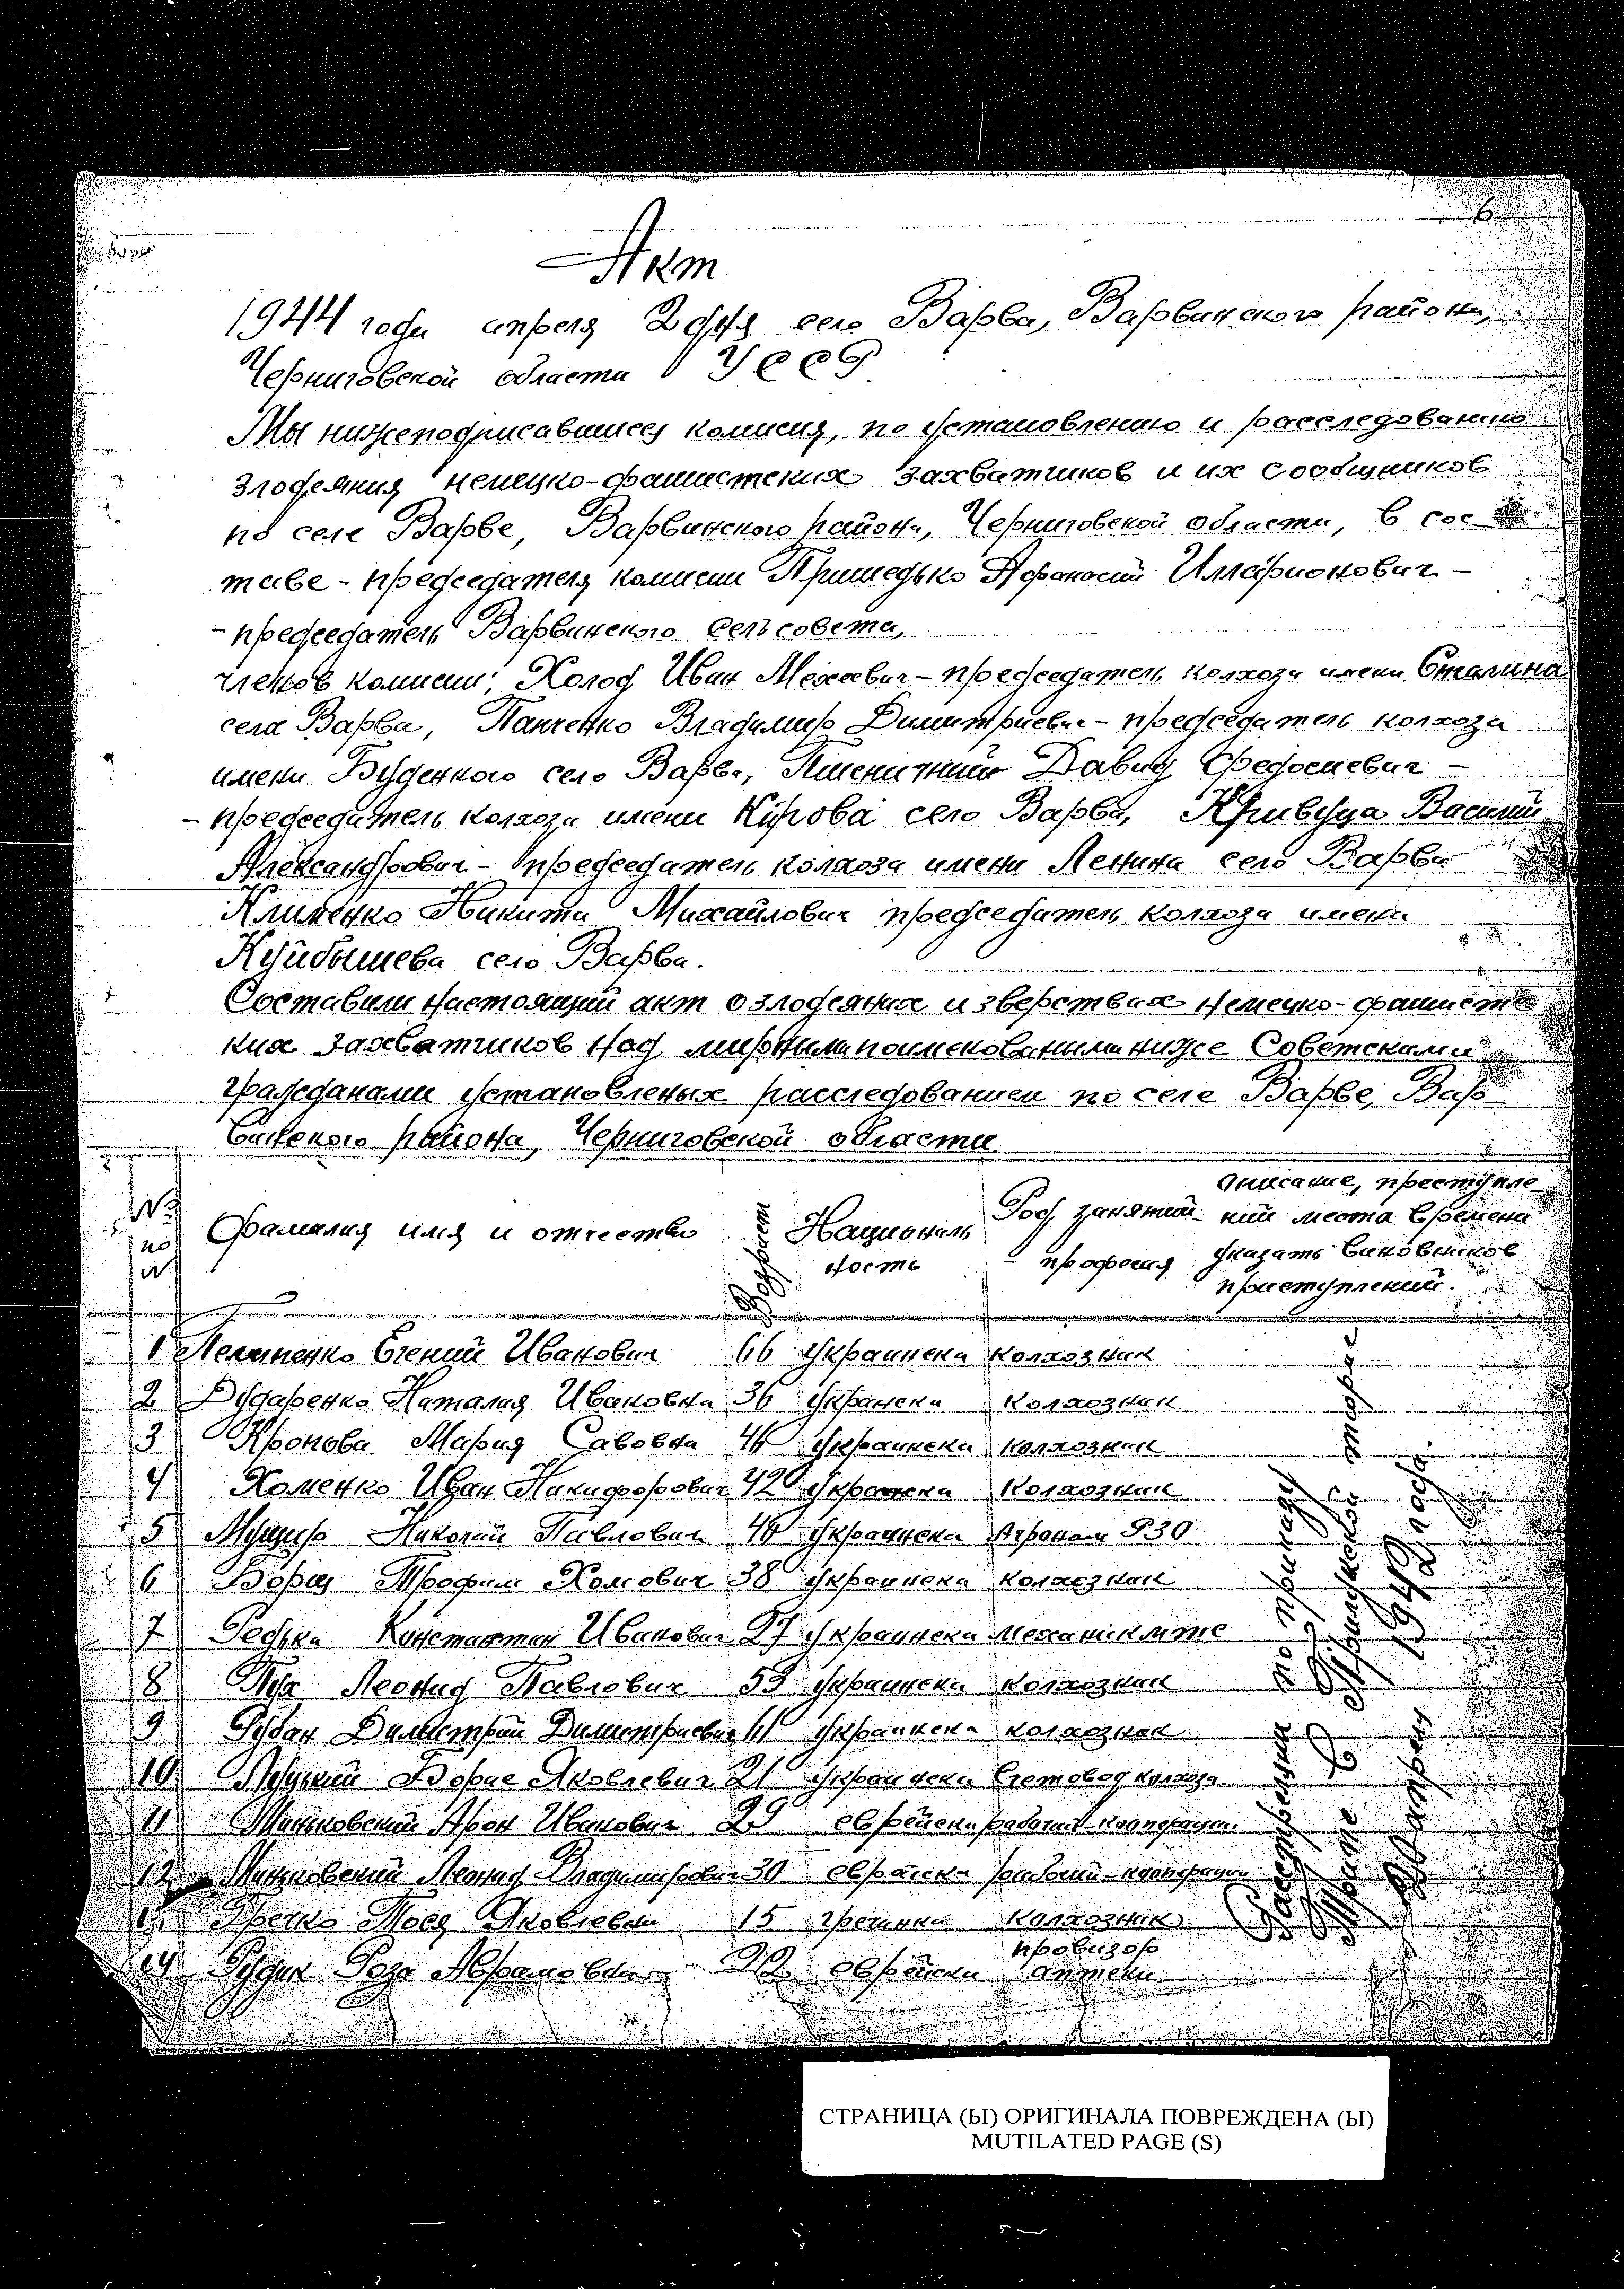 6
Акт
1944 года апреля 2 дня село Варва, Варвинского района,
Черниговской области УССР
Мы нижеподписавшиесу комисия, по установлению и расследованию
злодеяния немецко-фашистских захватчиков и их сообщников
по селе Варве, Варвинского района, Черниговской области, в сос
таве - председателя комисии Пришедько Афанасий Илларионович -
- председатель Варвинского сельсовета,
членов комисии; Холод Иван Мехеевич - председатель колхоза имени Сталина
села Варва, Панченко Владимир Димитриевич - председатель колхоза
имени Буденного село Варва, Пшеничний Давид Федосиевич -
- председатель колхоза имени Кирова село Варва, Кривуца Василий
Александрович - председатель колхоза имени Ленина село Варва
Клименко Никита Михайлович председатель колхоза имени
Куйбышева село Варва.
Составили настоящий акт о злодеяниях и зверствах немецко-фашистс
ких захватчиков над мирными поименоваными ниже Советскими
гражданами установленых расследованием по селе Варве, Вар
винского района, Черниговской области.
№ по № Фамилия имя и отчество Возраст Националь ность Род занятий - професия описание, преступле ний места времени указать виновников приступлений.
1 Евгений Иванович 66 украинска колхозник
2 Дударенко Наталия Ивановна 36 украинска колхозник
3 Мария Савовна украинска колхозник
4 Хоменко Иван Никифорович 42 украинска колхозник
5 Николай Павлович украинска Агроном РЗО
6 Борщ Трофим Хомович 38 украинска колхозник
7 Редька Константин Иванович 27 украинска механик мтс
8 Пух Леонид Павлович 53 украинска колхозник
9 Рубан Димитрий Димитриевич 61 украинска колхозник
10 Луцкий Борис Яковлевич 21 украинска счетовод колхоза
11 Миньковский Арон Иванович 29 еврейска рабочий кооперации
12 Миньковский Леонид Владимирович 30 еврейска рабочий кооперации
13 Гречко Яковлевна 15 колхозник
14 Рудик Роза Абрамовна 22 еврейска провизор аптеки
Расстреляни по приказу
в Прилуцкой тюрме
апреля 1942 года.
СТРАНИЦА (Ы) ОРИГИНАЛА ПОВРЕЖДЕНА (Ы)
MUTILATED PAGE (S)